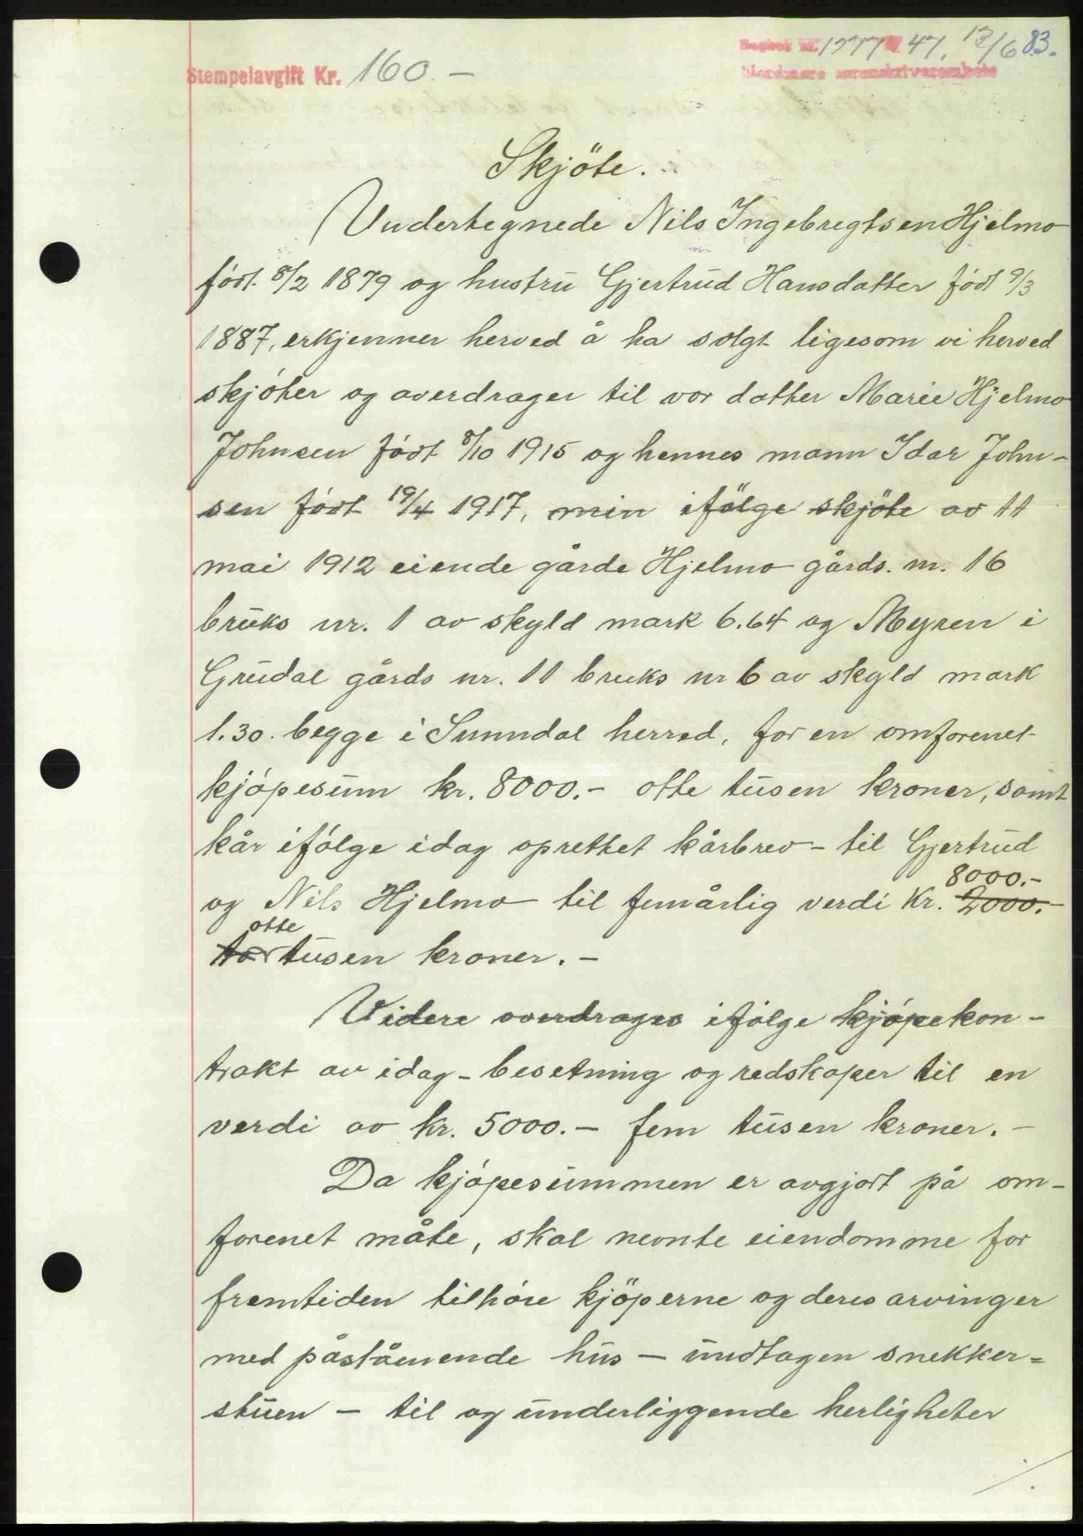 Stempelavgift Kr. 160.-
Dagbok nr. 1277 47. 13/6 83.
Nordmøre sorenskriverembete
Skjöte.
Undertegnede Nils Ingebregtsen Hjelmo
født 8/2 1879 og hustru Gjertrud Hansdatter født 9/3
1887, erkjenner herved å ha solgt ligesom vi herved
skjöter og overdrager til vor datter Marie Hjelmo
Johnsen født 8/10 1915 og hennes mann Idar John-
sen født 19/4 1917, min ifölge skjöte av 11
mai 1912 eiende gårde Hjelmo gårds. nr. 16
bruks nr. 1 av skyld mark 6.64 og Myren i
Grudal gårds nr. 11 bruks nr 6 av skyld mark
1.30. begge i Sunndal herred, for en omforenet
kjöpesum kr. 8000.- otte tusen kroner, samt
kår ifölge idag oprettet kårbrev - til Gjertrud
8000.-
og Nils Hjelmo til femårlig verdi Kr. 2000.-
otte
to tusen kroner. -
Videre overdrages ifölge kjöpekon-
trakt av idag - besetning og redskaper til en
verdi av kr. 5000.- fem tusen kroner. -
Da kjöpesummen er avgjort på om-
forenet måte, skal nevnte eiendomme for
fremtiden tilhöre kjöperne og deres arvinger
med påståenende hus - undtagen snekker=
stuen - til og underliggende herligheter